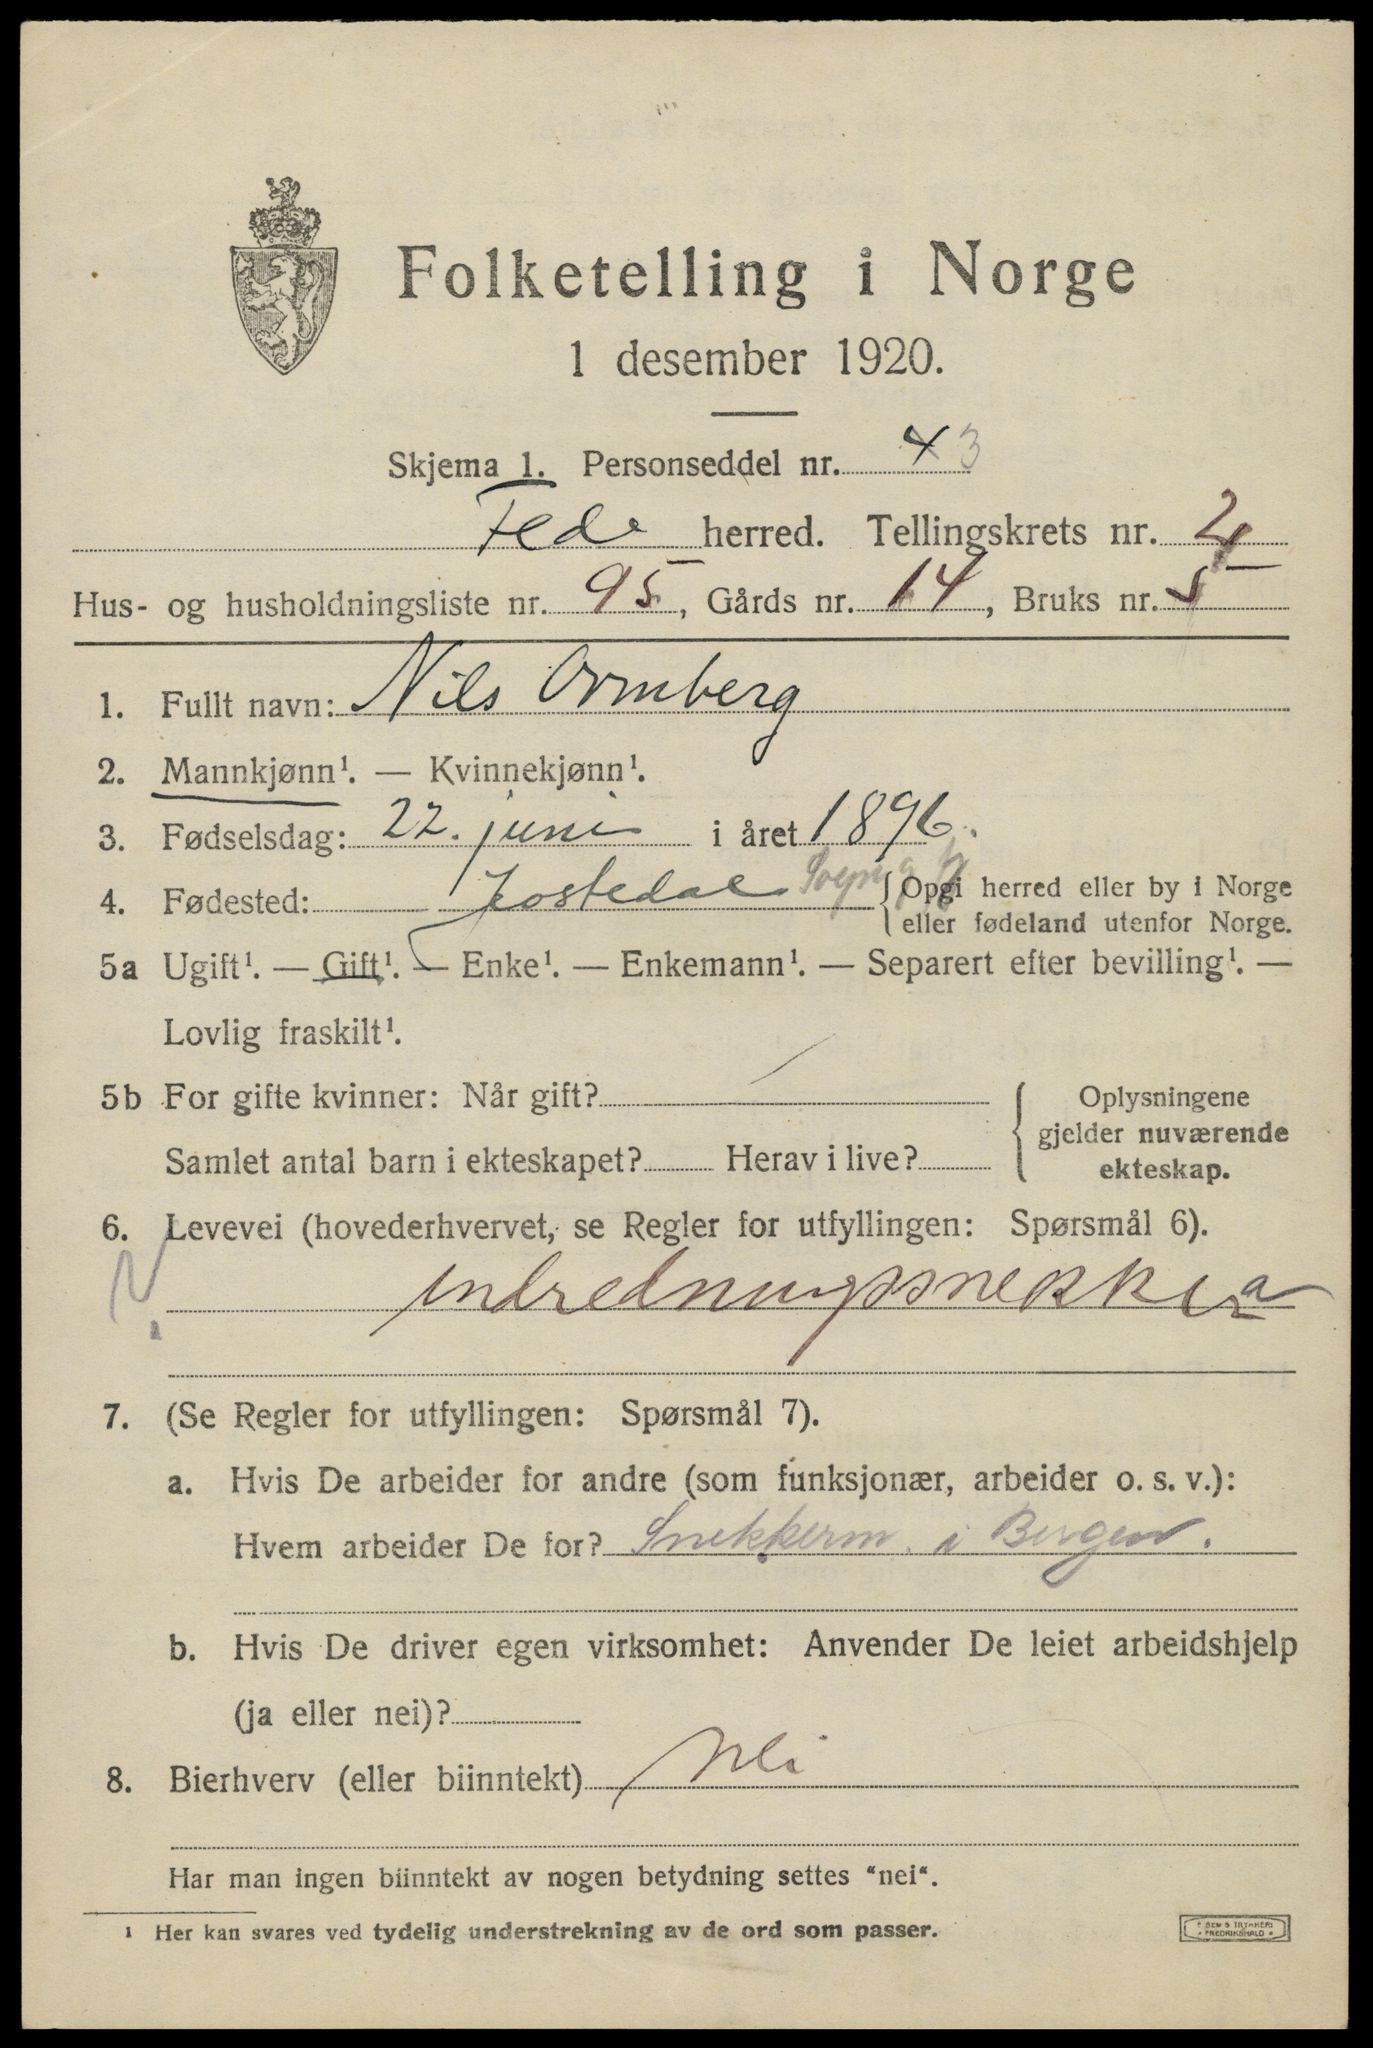 Folketelling i Norge
1 desember 1920.
Skjema 1. Personseddel nr. 4 3
Fede herred. Tellingskrets nr. 4
Hus- og husholdningsliste nr. 95, Gårds nr. 14, Bruks nr. 5
1. Fullt navn: Nils Ormberg
2. Mannkjønn¹. — Kvinnekjønn¹.
3. Fødselsdag: 22. juni i året 1896.
4. Fødested: Jostedal Sogn og Fj { Opgi herred eller by i Norge
eller fødeland utenfor Norge.
5a Ugift¹. — Gift¹. — Enke¹. — Enkemann¹. — Separert efter bevilling¹. —
Lovlig fraskilt¹.
5b For gifte kvinner: Når gift? / { Oplysningene
gjelder nuværende
Samlet antal barn i ekteskapet? Herav i live? ekteskap.
6. Levevei (hovederhvervet, se Regler for utfyllingen: Spørsmål 6).
indredningssnekker a
7. (Se Regler for utfyllingen: Spørsmål 7).
a. Hvis De arbeider for andre (som funksjonær, arbeider o. s. v.):
Hvem arbeider De for? Snekkerm. i Bergen.
b. Hvis De driver egen virksomhet: Anvender De leiet arbeidshjelp
(ja eller nei)?
8. Bierhverv (eller biinntekt) Nei
Har man ingen biinntekt av nogen betydning settes “nei“.
¹ Her kan svares ved tydelig understrekning av de ord som passer.